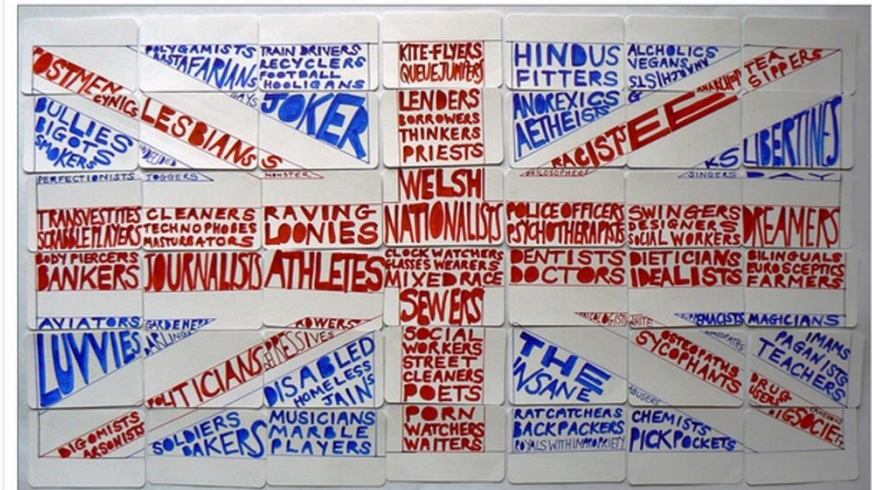 POLYGAMISTS
RASTAFARIANS
GAYS
TRAIN DRIVERS
RECYCLERS
FOOTBALL
HOOLIGANS
KITE-FLYERS
QUEUE JUMPERS
HINDUS
FITTERS
ALCHOLICS
VEGANS
ANARCHISTS
&
TEA
SIPPERS
OSTMEN
CYNICS
BULLIES
BIGOTS
SMOKERS
LESBIANS
JOKER
LENDERS
BORROWERS
THINKERS
PRIESTS
ANOREXICS
RACIST
LIBERTINES
KS
PERFECTIONISTS
JOGGERS
MONSTER
WELSH
PHILOSOPHERS
SINGERS
DAY
TRANSVESTITES
SCRABBLE PLAYERS
CLEANERS
TECHNOPHOBES
MASTURBATORS
RAVING
LOONIES
NATIONALISTS
POLICE OFFICERS
PSYCHOTHERAPISTS
SWINGERS
DESIGNERS
SOCIAL WORKERS
DREAMERS
BODY PIERCERS
BANKERS
JOURNALISTS
ATHLETES
CLOCK WATCHERS
GLASSES WEARERS
MIXED RACE
DENTISTS
DOCTORS
DIETICIANS
IDEALISTS
BILINGUALS
EUROSCEPTICS
FARMERS
SEWERS
AVIATORS
GARDENERS
ROWERS
MAGICIANS
LUVVIES
POLITICIANS
DISABLED
HOMELESS
JAINS
SOCIAL
WORKERS
STREET
CLEANERS
POETS
THE
INSANE
OSTEOPATHS
SYCOPHANTS
IMAMS
PAGANISTS
TEACHERS
DRUG
USERS
BIGOMISTS
ARSONISTS
SOLDIERS
BAKERS
MUSICIANS
MARBLE
PLAYERS
PORN
WATCHERS
WAITERS
RATCATCHERS
BACKPACKERS
ROYALS WITH IMPROPRIETY
CHEMISTS
PICKPOCKETS
BIG SOCIETY